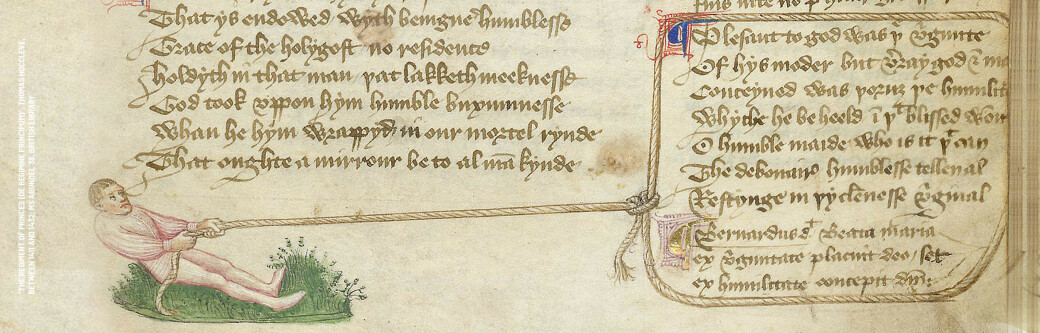 That ys endowed wyth benigne humblesse
Grace of the holy gost no residence
Holdyth in that man þat lakketh meeknesse
God took vppon hym humble buxumnesse
Whan he hym wrappyd in our mortel rynde
That oughte a mirrour be to al mākynde
Plesant to god was þe v̄ginite
Of hys moder but v̄ray god &
Conceyued was þoruȝ þe humilit
Whyche he beheeld ī þt blissed wom
O humble maide who is it þt can
The debonaire humblesse tellen al
Restynge in þy clēnesse v̄ginal
Bernardus d Beata maria
ex v̄ginitate placuit deo / set
ex humilitate concepit
"THE REGIMENT OF PRINCES (DE REGIMINE PRINCIPUM)", THOMAS HOCCLEVE,
BETWEEN 1411 AND 1432, MS ARUNDEL 38, BRITISH LIBRARY